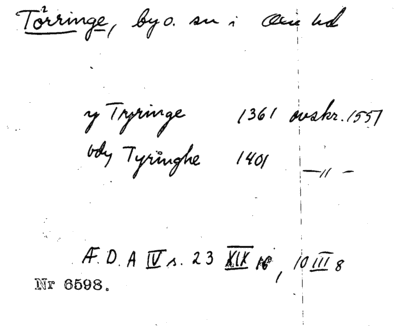 Törringe, by o. sn i Oxie hd
y Tryringe 1361 avskr. 1551
vdy Tyringhe 1401 —〃—
Æ. D. A IV s. 23 XIX 16, 10 III 8
Nr 6598.